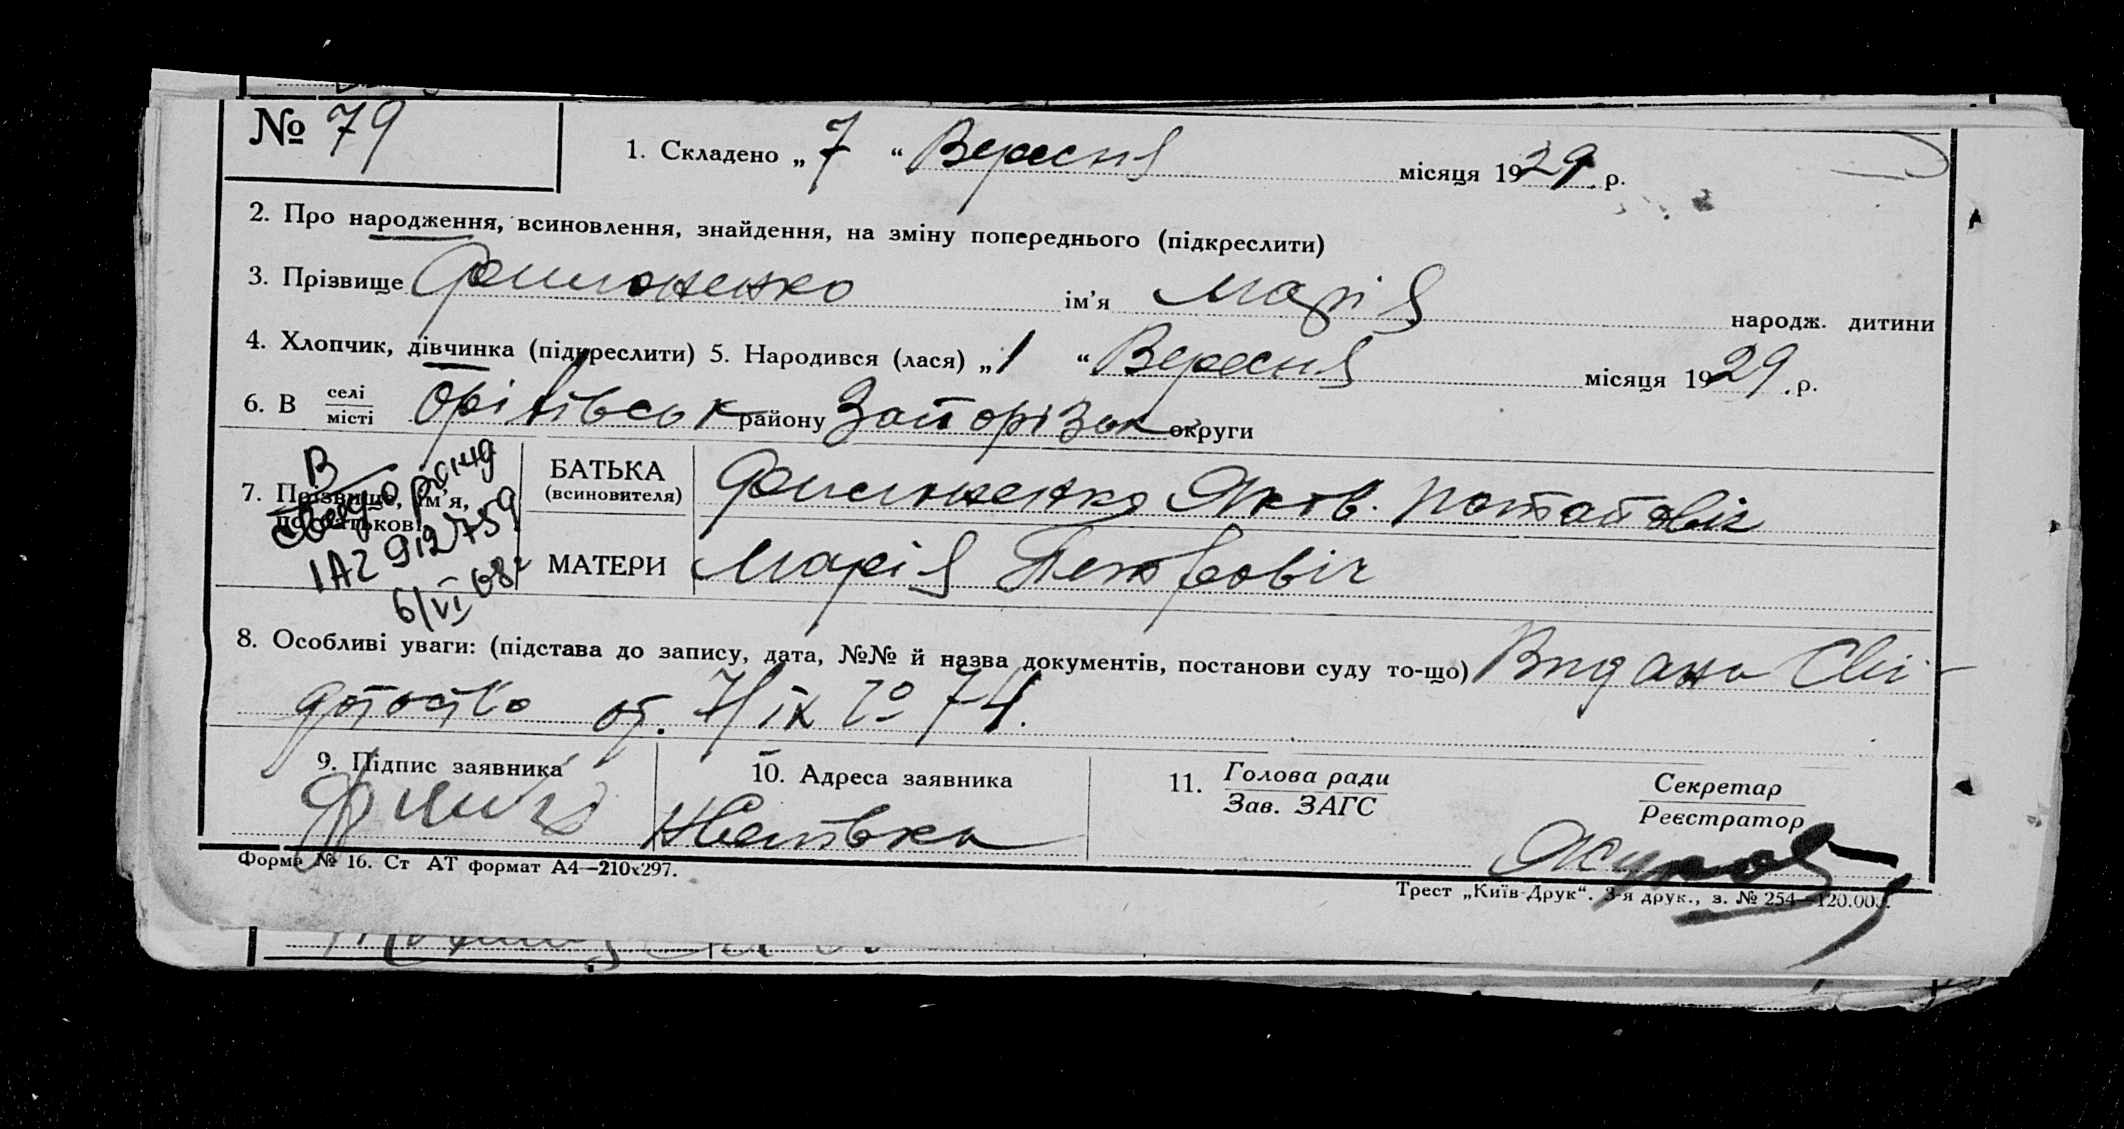 № 79
1. Складено „ 7 “ Вересня місяця 1929 р.
2. Про народження, всиновлення, знайдення, на зміну попереднього (підкреслити)
3. Прізвище Филоненко ім’я Марія народж. дитини
4. Хлопчик, дівчинка (підкреслити) 5. Народився (лася) „ 1 “ Вересня місяця 1929 р.
6. В селі місті Оріхівськ району Запорізьк округи
7. Прізвище, ім’я, по батькові
В
1АZ 912759
6/VI 68
БАТЬКА (всиновителя) Филоненко Яков. Потапович
МАТЕРИ Марія Петровіч
8. Особливі уваги: (підстава до запису, дата, №№ й назва документів, постанови суду то-що) Видано Сві-
от. 7/ІХ № 74.
9. Підпис заявника
10. Адреса заявника
11. Голова ради
Зав. ЗАГС
Секретар
Реєстратор
Форма № 16. Ст АТ формат А4—210х297.
Трест „Київ-Друк“. 3-я друк., з. № 254—120.000.